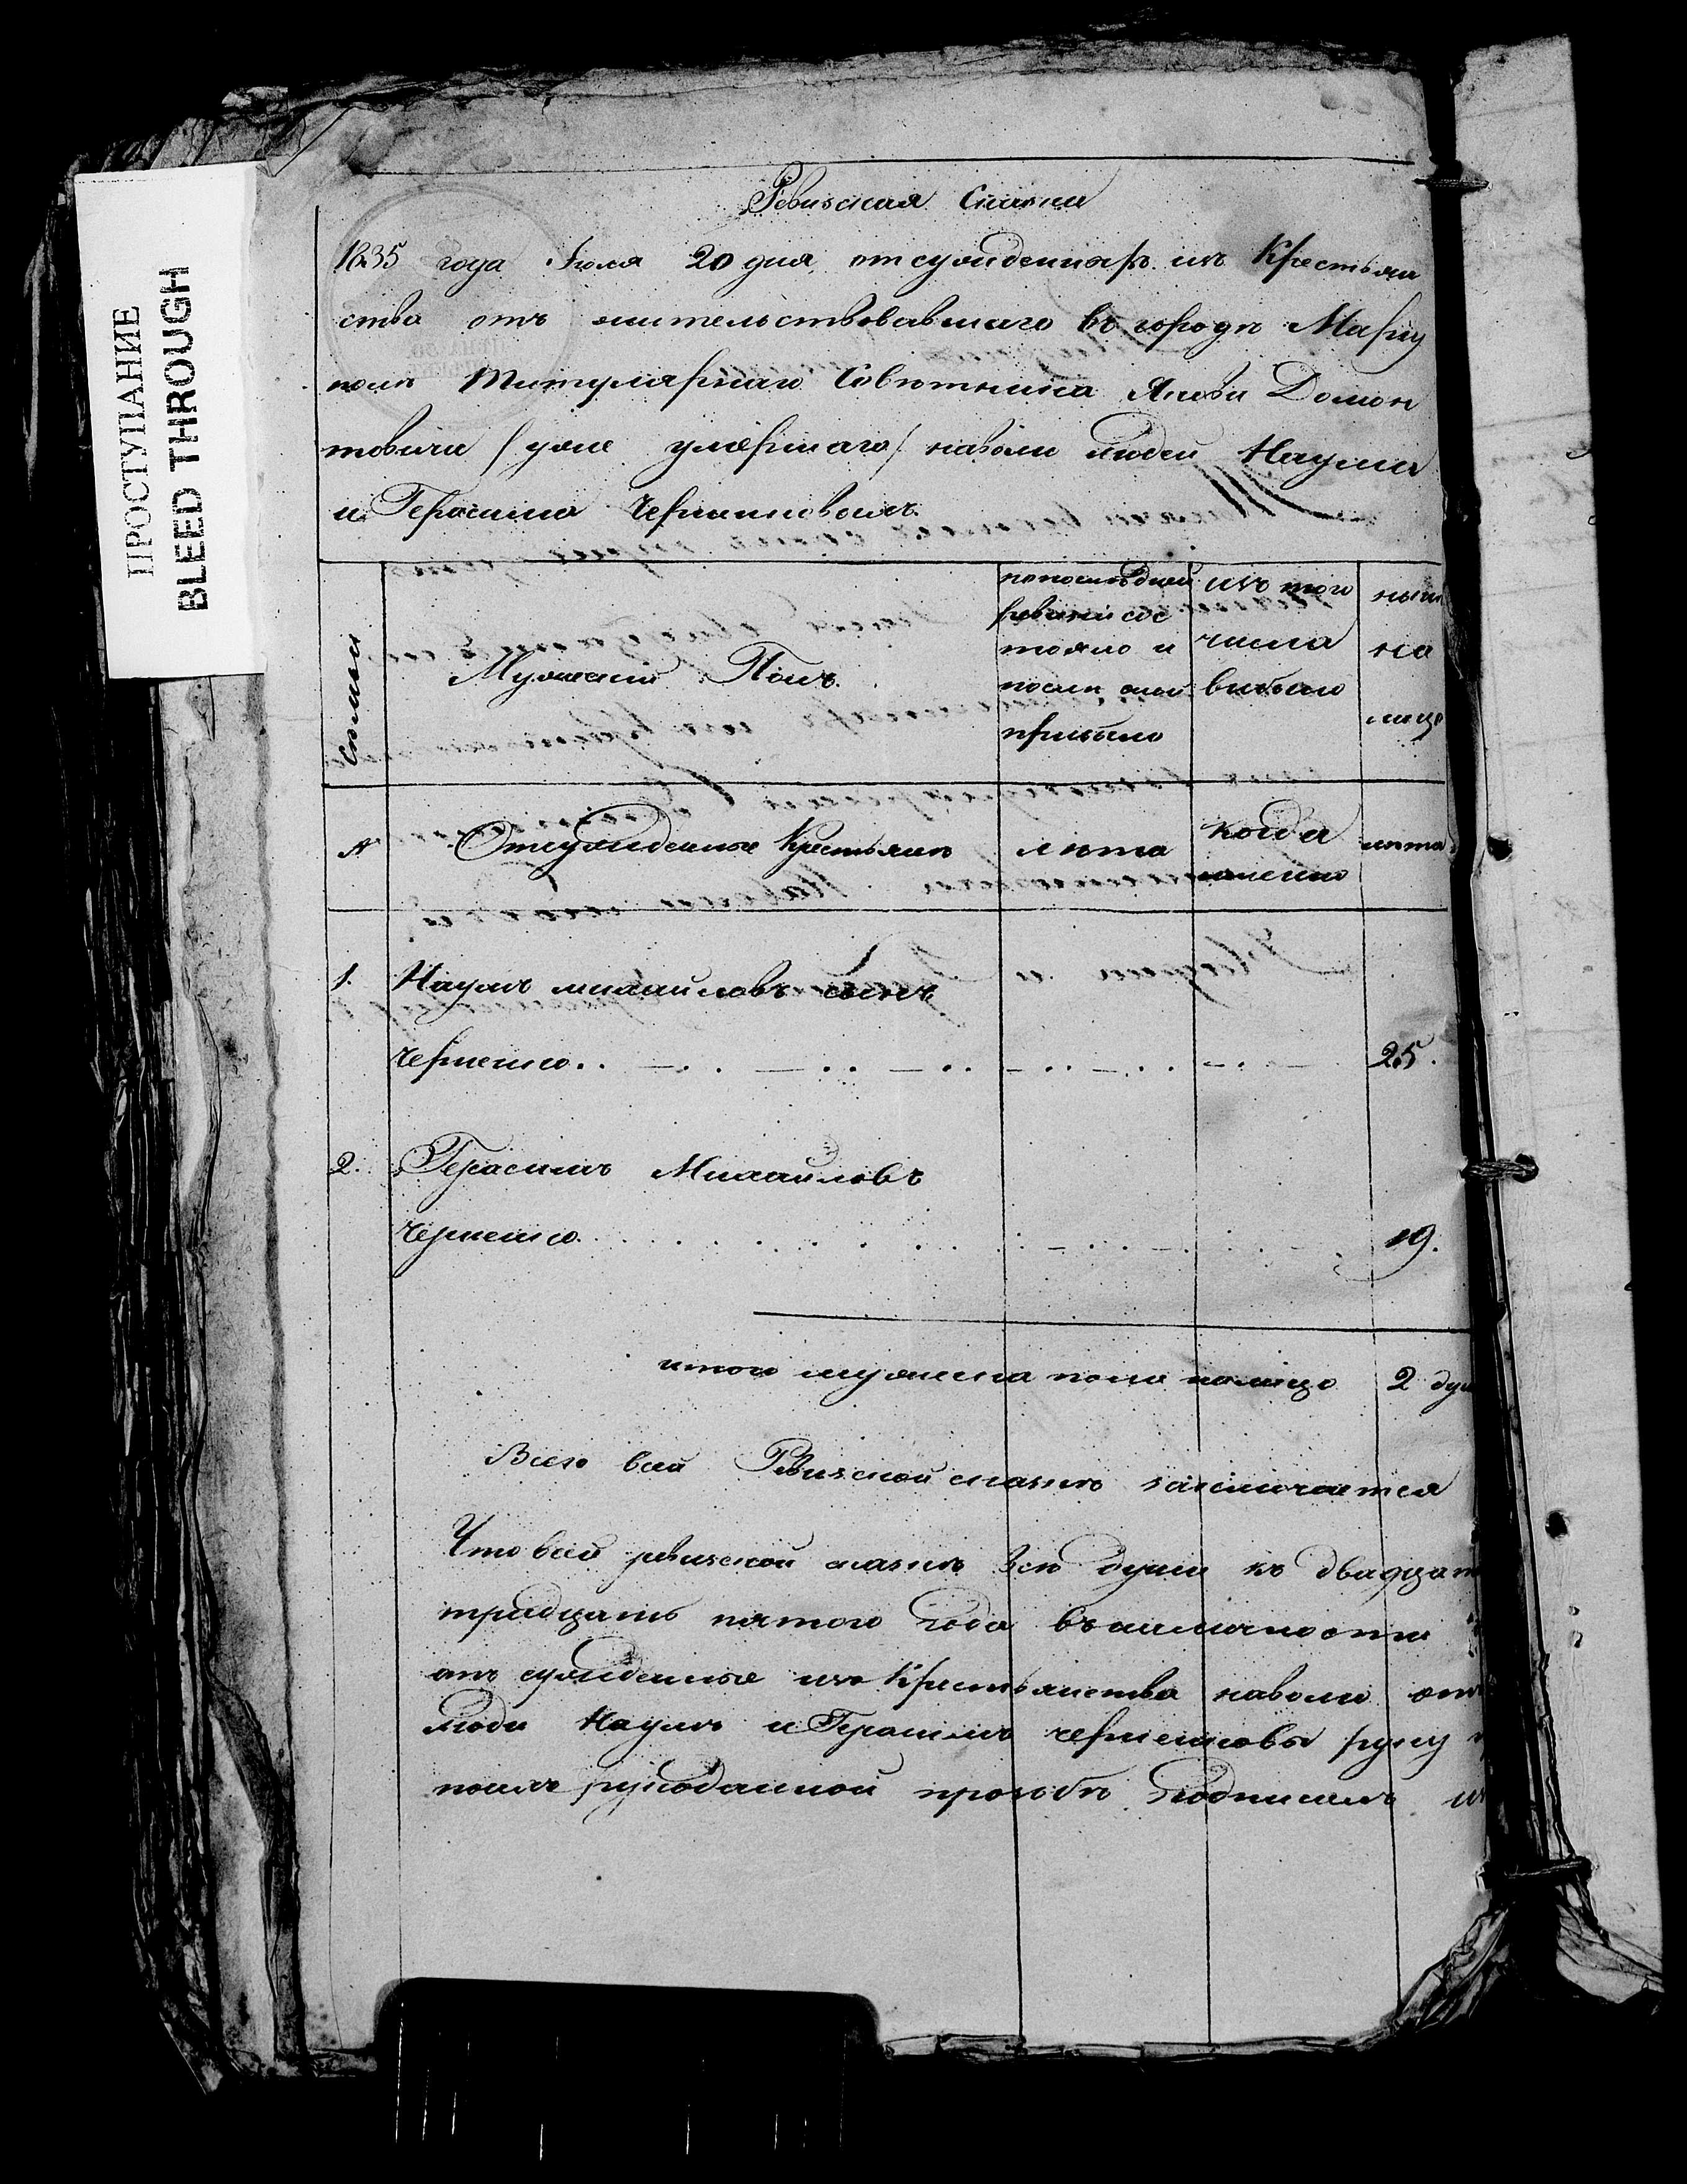 ПРОСТУПАНИЕ
BLEED THROUGH
Ревизская Сказка
1835 года Июля 20 дня, отсужденныхъ изъ Крестьян
ства отъ жительствовавшаго въ городе Мариу
поле Титулярнаго Советника Якова Домон
товича /уже умершаго/ наволю людей Наума
и Герасима Черненковыхъ.
Семьи
Мужеский Полъ.
по последней
ревизии сос
тояло и
после оной
прибыло
изъ того
числа
выбыло
ныне
на
лице
№
Отсужденные Крестьяне
лета
когда
именно
лета
1. Наумъ михаиловъ сынъ
Черненко. 25.
2. Герасимъ Михайловъ
Черненко. 19.
итого мужеска пола налицо 2 душ
Всего всей Ревизской сказке заключается
Что всей ревизской сказке все души къ двадцат
тридцать пятого года въ наличности
отъ сужденные изъ Крестьянства наволю
люди Наумъ и Герасимъ Черненковы
ихъ рукоданной прозьбе подписалъ